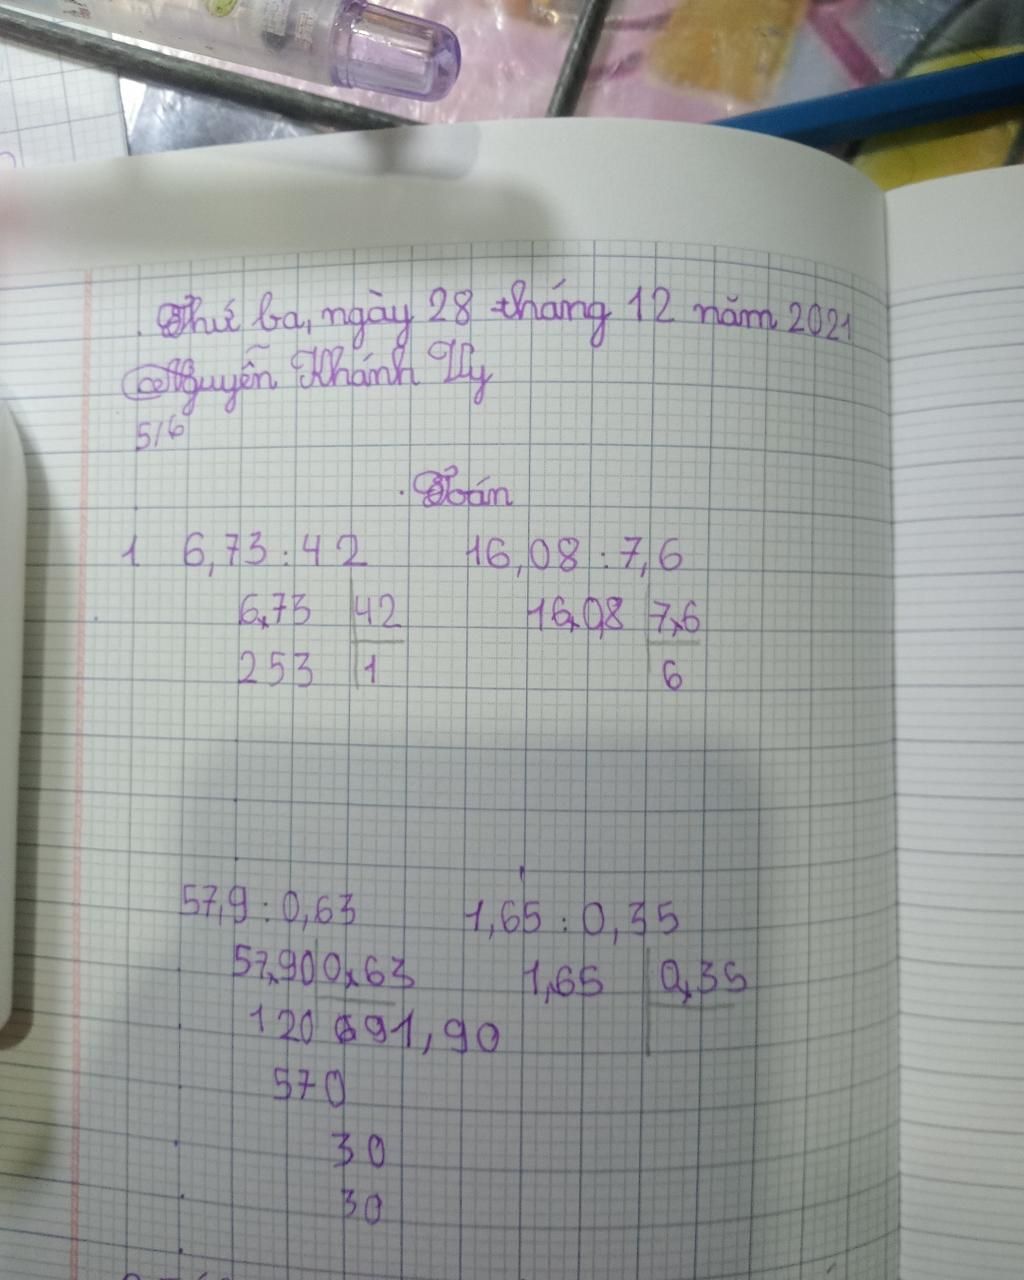 Thứ ba, ngày 28 tháng 12 năm 2021
Nguyễn Khánh Vy
5/6
Toán
1 6,73 : 42 16,08 : 7,6
6,73 42 16,08 7,6
253 1 6
57,9 : 0,63 1,65 : 0,35
57,90 0,63 1,65 0,35
120 91,90
570
30
30